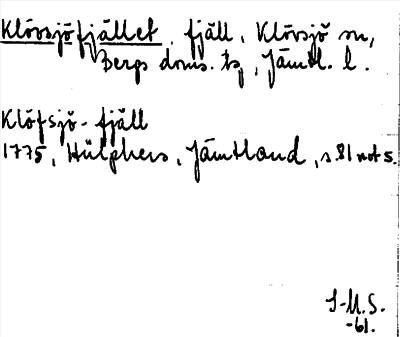 Klövsjöfjället, fjäll, Klövsjö sn,
Bergs doms. tg, Jämtl. l.
Klöfsjö-fjäll
1775, Hülphers, Jämtland, s. 81 not s.
I-M.S.
-61.